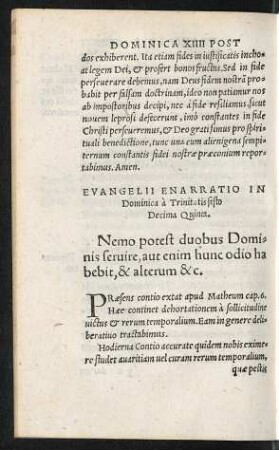 DOMINICA XIIII POST
dos exhiberent. Ita etiam fides in iustificatis inchoat
legem Dei, & profert bonos fructus. Sed in fide
perseuerare debemus, nam Deus fidem nostrã probabit
per falsam doctrinam, ideo non patiamur nos
ab impostoribus decipi, nec à fide resiliamus, sicut
nouem leprosi defecerunt, imò constantes in fide
Christi perseueremus, & Deo grati simus pro spirituali
benedictione, tunc una cum alienigena sempiternum
constantis fidei nostræ præconium reportabimus.
Amen.
EVANGELII ENARRATIO IN
Dominica à Trinitatis festo
Decima Quinta.
Nemo potest duobus Dominis
seruire, aut enim hunc odio habebit,
& alterum &c.
PRæsens contio extat apud Matheum cap. 6.
Hæc continet dehortationem à sollicitudine
uictus & rerum temporalium. Eam in genere deliberatiuo
tractabimus.
Hodierna Contio accurate quidem nobis eximere
studet auaritiam uel curam rerum temporalium,
quæ pestis